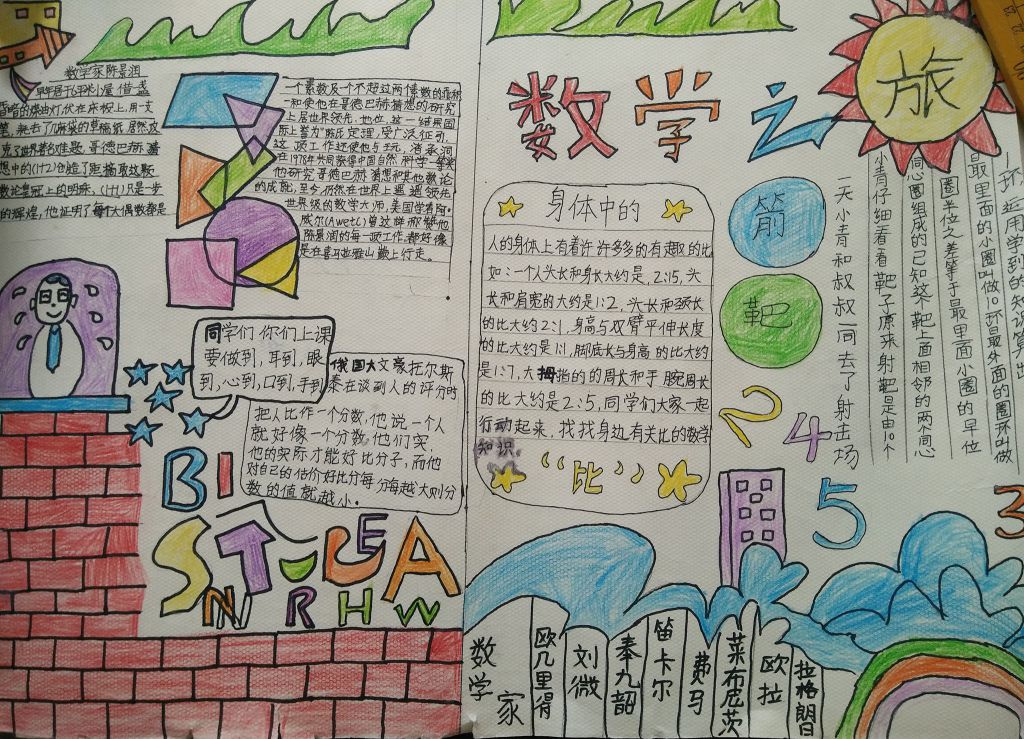 数学家陈景润
昏暗的煤油灯,伏在床板上,用一支
笔,耗去了几麻袋的草稿纸,居然攻
克了世界著名难题,哥德巴赫猜
想中的(1+2)创造了距摘取这颗
数论皇冠上的明珠,(1+1)只是一步
的辉煌,他证明了每个大偶数都是
一个素数及一个不超过两个素数的乘积
和使他在哥德巴赫猜想的研究
上居世界领先,地位,这一结果国
际上誉为陈氏定理,受广泛征引,
这项工作还使他与王元,潘承洞
在1978年共同获得中国自然科学一等奖
他研究哥德巴赫猜想和其他数论
的成就,至今,仍然在世界上遥遥领先
世界级的数学大师,美国学者阿。
威尔(AWetl)曾这样称赞他
陈景润的每一项工作,都好像
是在喜马拉雅山巅上行走。
同学们你们上课
要做到,耳到,眼
到,心到,口到,手到
俄国大文豪托尔斯
泰在谈到人的评价时
把人比作一个分数,他说一个人
就好像一个分数,他们实
他的实际才能好比分子,而他
对自己的估价好比分母分母越大则分
数的值就越小。
BI
数学之
旅
身体中的
人的身体上有着许许多多的有趣的比
如:一个人头长和身长大约是,2:15,头
长和肩宽的大约是1:2,头长和颈长
的比大约2:1,身高与双臂平伸长度
的比大约是1:1,脚底长与身高的比大约
是1:7,大拇指的的周长和手腕周长
的比大约是2:5,同学们大家一起
行动起来,找找身边有关比的数学
知识。
“比”
箭
靶
2
4
5
3
一天小青和叔叔一同去了射击场
小青仔细看看靶子原来射靶是由10个
同心圆组成的已知这个靶上面相邻的两个同心
圆半位之差等于最里面小圈的早位
最里面的小圈叫做10环最外面的圈环叫做
1环,运用学到的知识算出
数学家
欧几里得
刘微
奉九韶
笛卡尔
费马
莱布尼茨
欧拉
拉格朗日